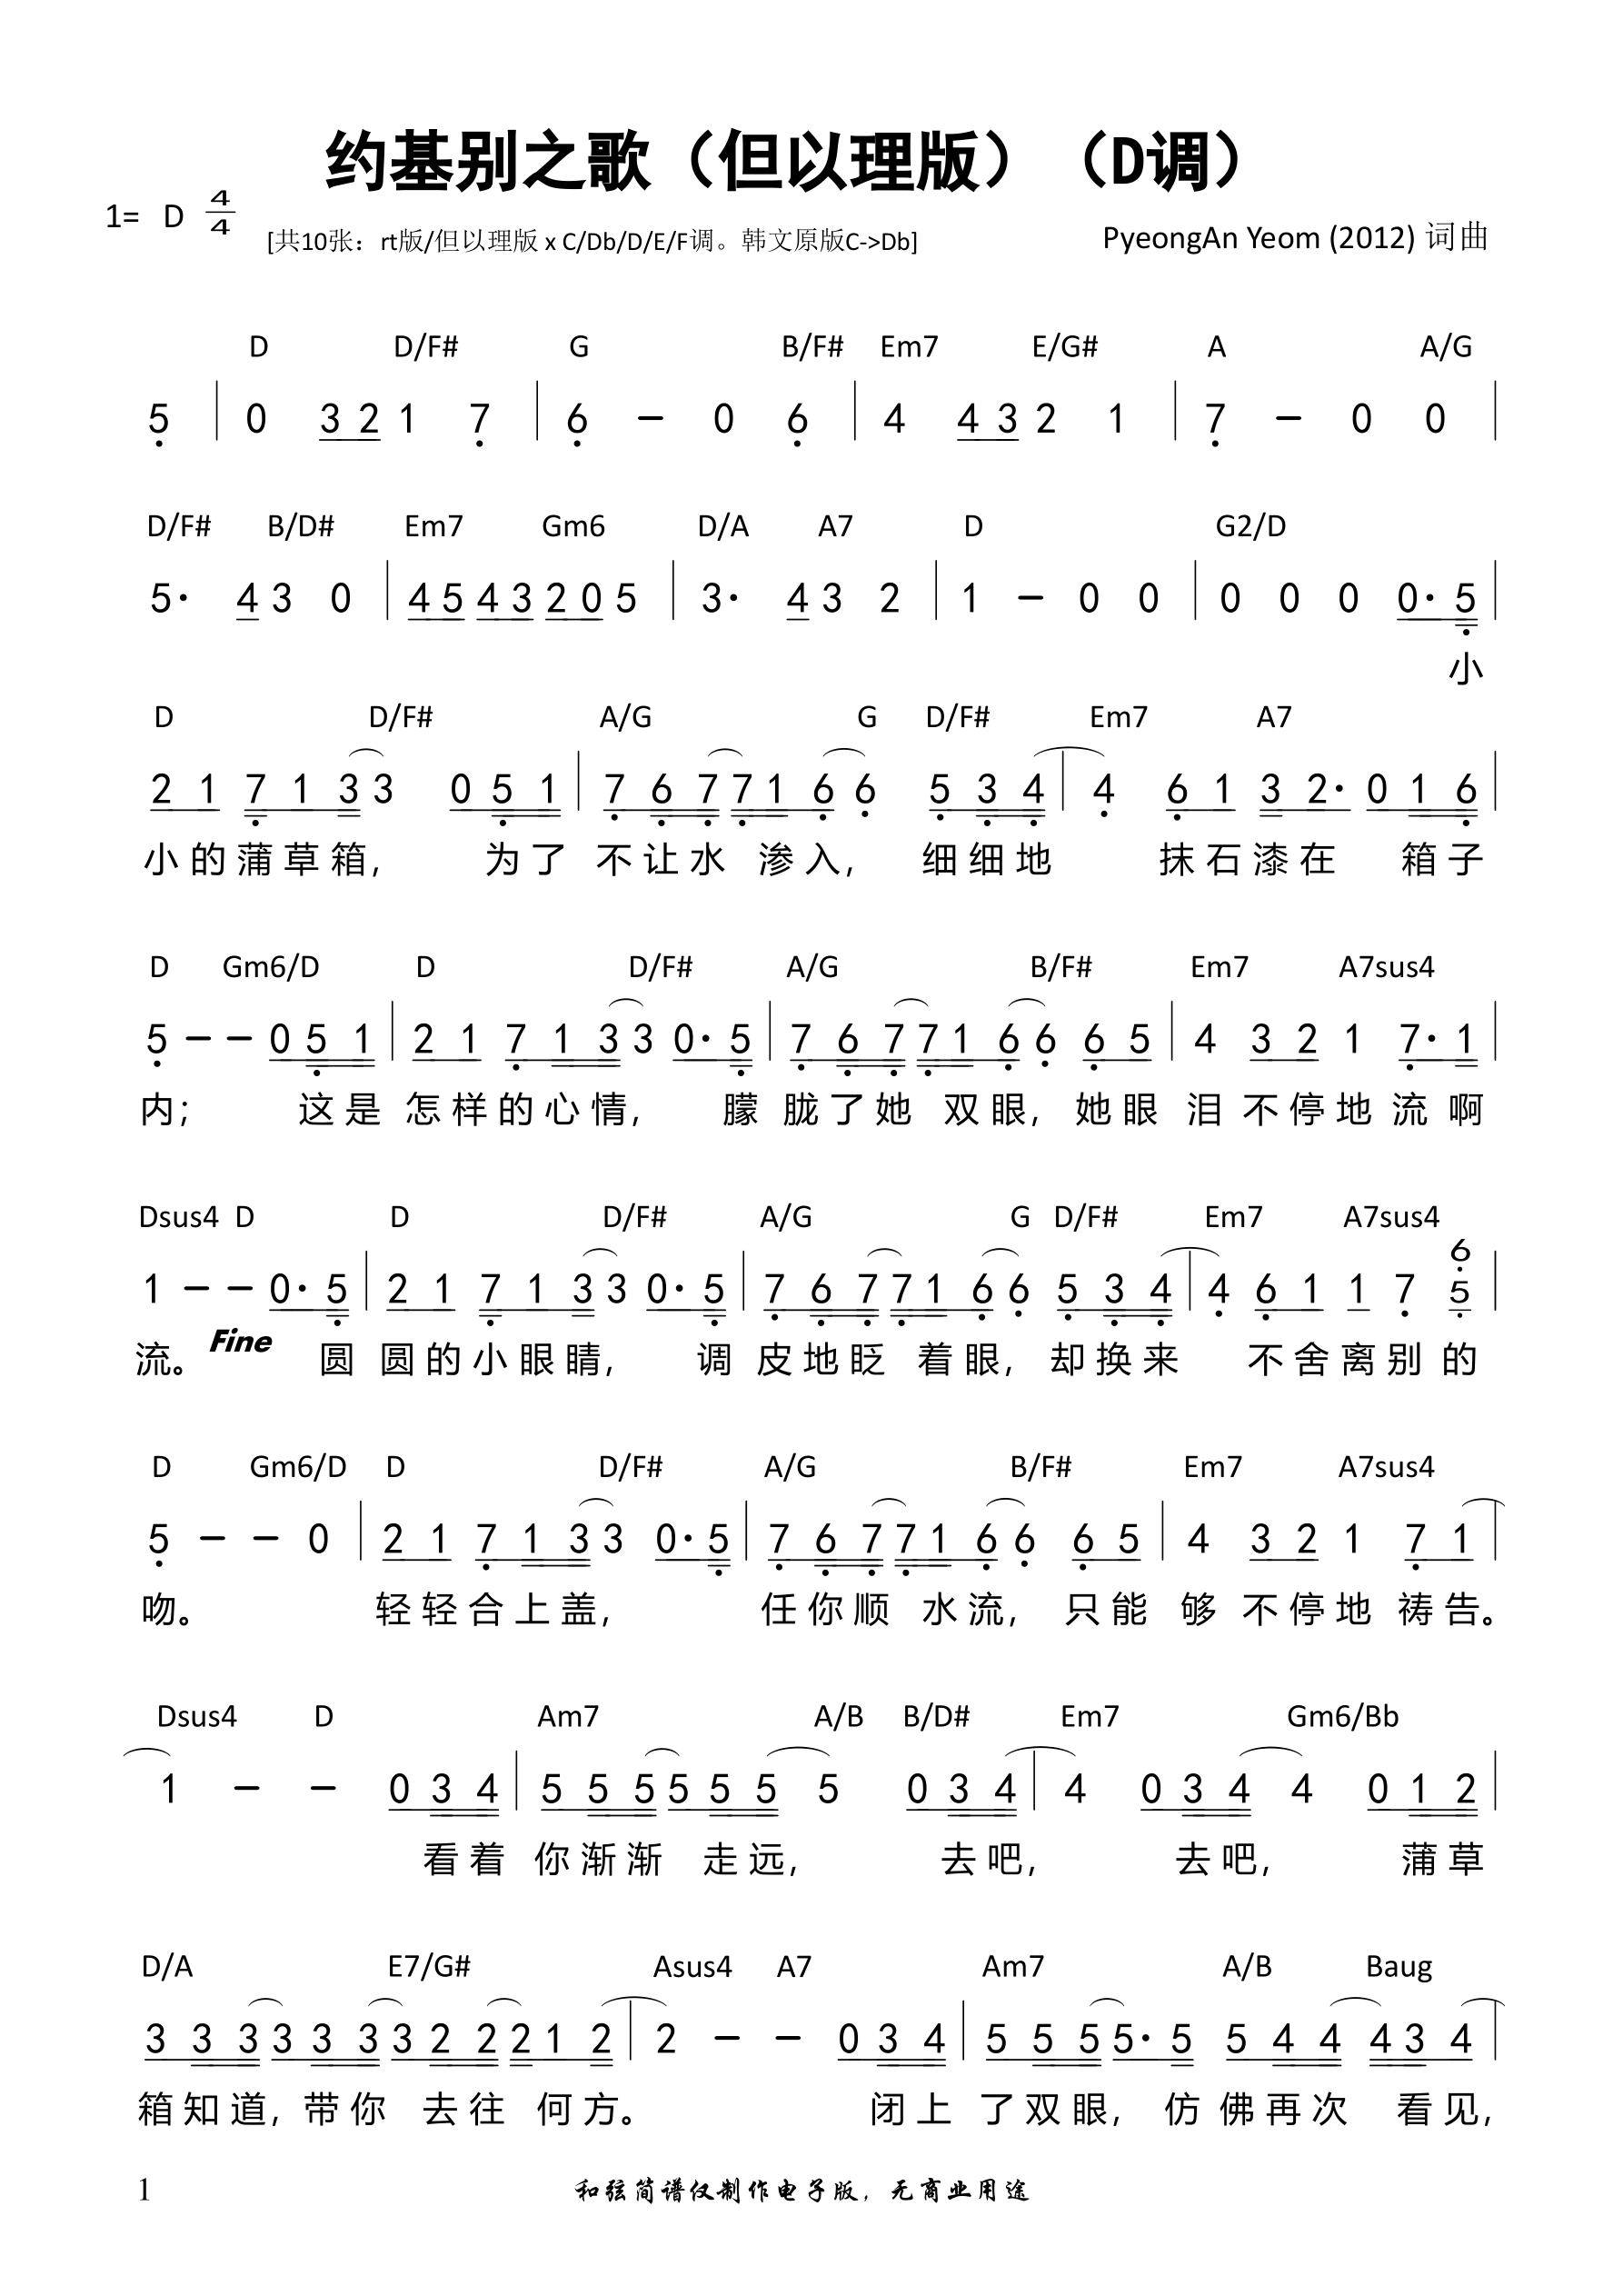 约基别之歌（但以理版）（D调）
1= D 4/4
[共10张：rt版/但以理版 x C/Db/D/E/F调。韩文原版C->Db]
PyeongAn Yeom (2012) 词曲
D D/F# G B/F# Em7 E/G# A A/G
5 | 0 3 2 1 7 | 6 - 0 6 | 4 4 3 2 1 | 7 - 0 0 |
D/F# B/D# Em7 Gm6 D/A A7 D G2/D
5· 4 3 0 | 4 5 4 3 2 0 5 | 3· 4 3 2 | 1 - 0 0 | 0 0 0 0· 5 |
小
D D/F# A/G G D/F# Em7 A7
2 1 7 1 3 3 0 5 1 | 7 6 7 7 1 6 6 5 3 4 | 4 6 1 3 2· 0 1 6 |
小的蒲草箱, 为了 不让水 渗入, 细细地 抹石漆在 箱子
D Gm6/D D D/F# A/G B/F# Em7 A7sus4
5 - - 0 5 1 | 2 1 7 1 3 3 0· 5 | 7 6 7 7 1 6 6 6 5 | 4 3 2 1 7· 1 |
内; 这是 怎样的心情, 朦 胧了她 双眼, 她眼 泪 不停地 流 啊
Dsus4 D D D/F# A/G G D/F# Em7 A7sus4
1 - - 0· 5 | 2 1 7 1 3 3 0· 5 | 7 6 7 7 1 6 6 5 3 4 | 4 6 1 1 7 6 5 |
流。 Fine 圆 圆的小眼睛, 调 皮地眨 着眼, 却换来 不舍离别 的
D Gm6/D D D/F# A/G B/F# Em7 A7sus4
5 - - 0 | 2 1 7 1 3 3 0· 5 | 7 6 7 7 1 6 6 6 5 | 4 3 2 1 7 1 |
吻。 轻轻合上盖, 任你顺 水流, 只能 够 不停地 祷告。
Dsus4 D Am7 A/B B/D# Em7 Gm6/Bb
1 - - 0 3 4 | 5 5 5 5 5 5 5 0 3 4 | 4 0 3 4 4 0 1 2 |
看着 你渐渐 走远, 去吧, 去吧, 蒲草
D/A E7/G# Asus4 A7 Am7 A/B Baug
3 3 3 3 3 3 3 2 2 2 1 2 | 2 - - 0 3 4 | 5 5 5 5· 5 5 4 4 4 3 4 |
箱知道, 带你 去往 何方。 闭上 了双眼, 仿 佛再次 看见,
1
和弦简谱仅制作电子版，无商业用途